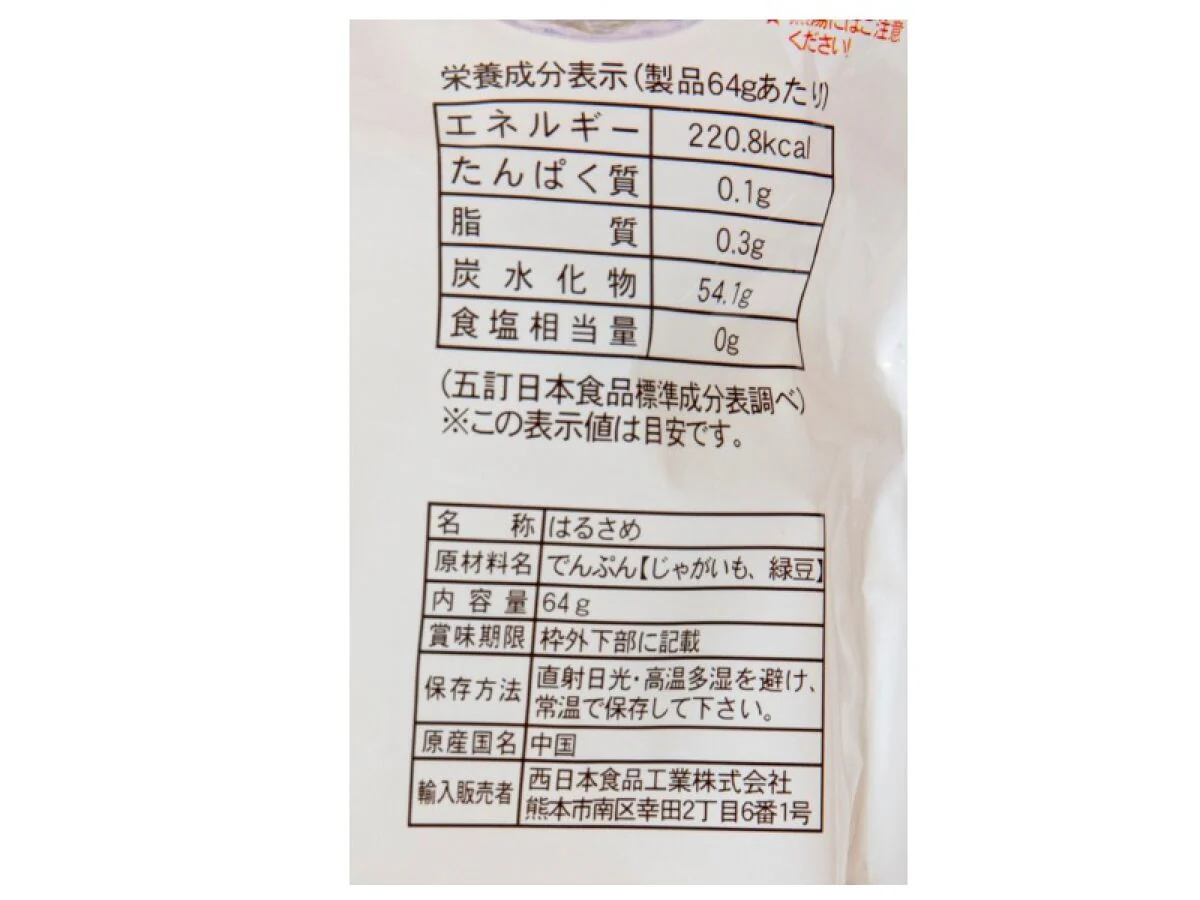 熱湯にはご注意
ください!
栄養成分表示(製品64gあたり)
エネルギー 220.8kcal
たんぱく質 0.1g
脂質 0.3g
炭水化物 54.1g
食塩相当量 0g
(五訂日本食品標準成分表調べ)
※この表示値は目安です。
名称 はるさめ
原材料名 でんぷん【じゃがいも、緑豆】
内容量 64g
賞味期限 枠外下部に記載
保存方法 直射日光・高温多湿を避け、
常温で保存して下さい。
原産国名 中国
輸入販売者 西日本食品工業株式会社
熊本市南区幸田2丁目6番1号